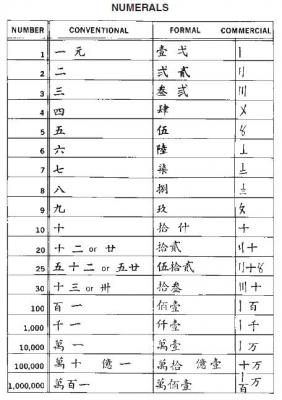 NUMERALS
NUMBER CONVENTIONAL FORMAL COMMERCIAL
1 一 元 壹 弌 〡
2 二 弍 貳 〢
3 三 叁 弎 〣
4 四 肆 〤
5 五 伍 〥
6 六 陸 〦
7 七 柒 〧
8 八 捌 〨
9 九 玖 〩
10 十 拾 什 十
20 十 二 or 廿 拾貳 〢十
25 五 十 二 or 五廿 伍拾貳 〢十〥
30 十 三 or 卅 拾叁 〣十
100 百 一 佰壹 〡百
1,000 千 一 仟壹 〡千
10,000 萬 一 萬壹 〡万
100,000 萬 十 億 一 萬拾 億壹 十万
1,000,000 萬 百 一 萬佰壹 〡百万